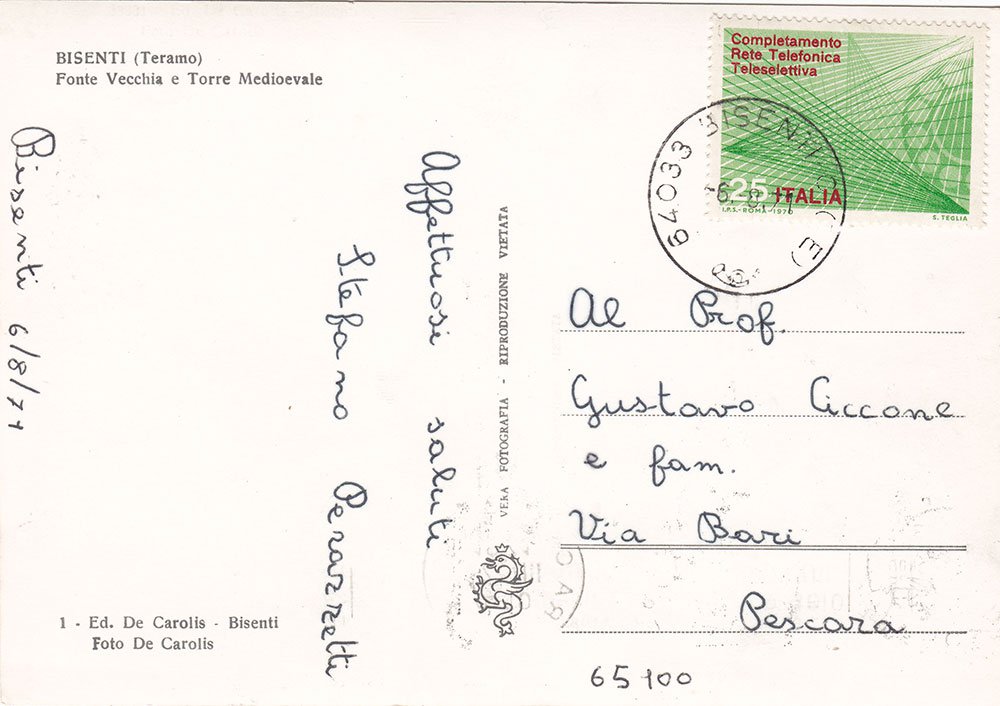 BISENTI (Teramo)
Fonte Vecchia e Torre Medioevale
Completamento
Rete Telefonica
Teleselettiva
25 ITALIA
I.P.S.-ROMA-1970
S. TEGLIA
64033 BISENTI (TE)
6.8.71
Bisenti 6/8/71
Affettuosi saluti
Stefano Perazzetti
VERA FOTOGRAFIA - RIPRODUZIONE VIETATA
Al Prof.
Gustavo Ciccone
e fam.
Via Bari
Pescara
65100
1 - Ed. De Carolis - Bisenti
Foto De Carolis